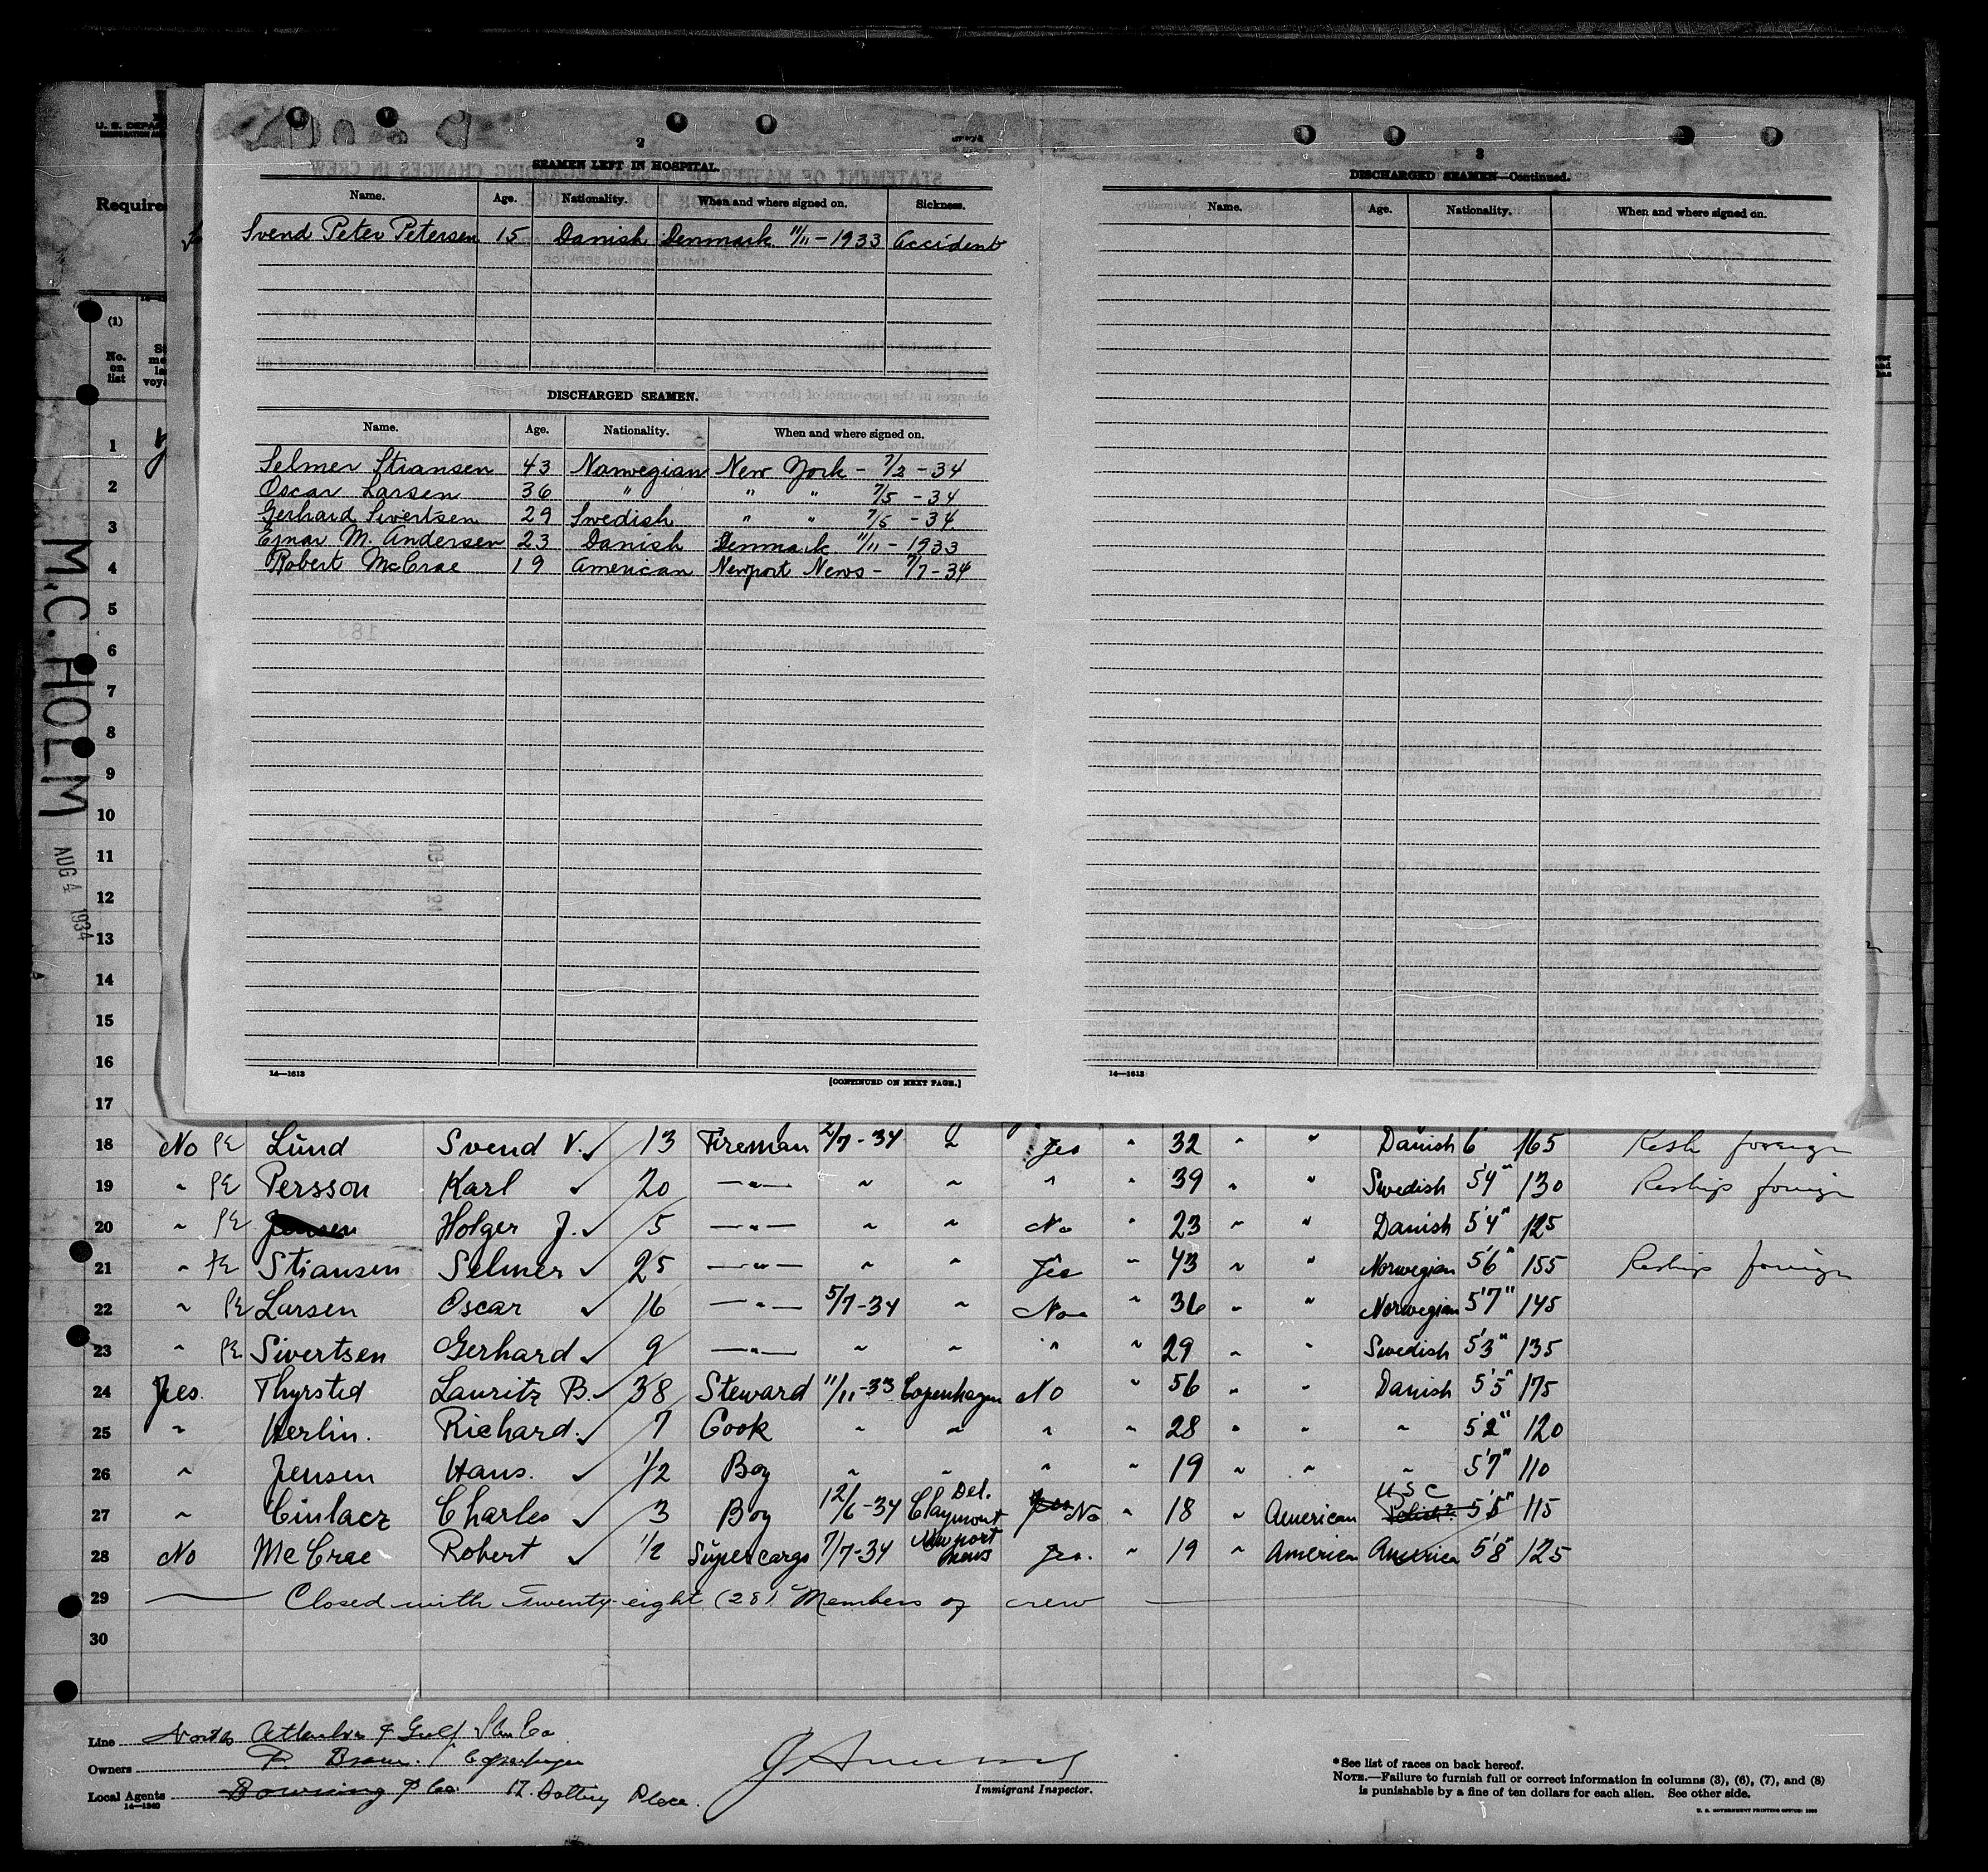 U. S. DEPA
Require
2
SEAMEN LEFT IN HOSPITAL.
Name. Age. Nationality. When and where signed on. Sickness.
Svend Peter Petersen 15 Danish Denmark 11/11 - 1933 Accident
DISCHARGED SEAMEN.
Name. Age. Nationality. When and where signed on.
Selmer Stiansen 43 Norwegian New York - 7/2 - 34
Oscar Larsen 36 " " " 7/5 - 34
Gerhard Sivertsen 29 Swedish " " 7/5 - 34
Ejnar M. Andersen 23 Danish Denmark 11/11 - 1933
Robert McCrae 19 American Newport News - 7/7 - 34
14—1613
[CONTINUED ON NEXT PAGE.]
3
DISCHARGED SEAMEN—Continued.
Name. Age. Nationality. When and where signed on.
14—1613
(1)
No. on list
M.C. HOLM
AUG 4 1934
1
2
3
4
5
6
7
8
9
10
11
12
13
14
15
16
17
18 No PE Lund Svend V. ✓ 13 Fireman 2/7-34 " Yes " 32 " " Danish 6' 165 Resh foreign
19 " PE Persson Karl ✓ 20 —"— " " " " 39 " " Swedish 5'4" 130 Reship foreign
20 " PE Jensen Holger J. ✓ 5 —"— " " No " 23 " " Danish 5'4" 125
21 " PE Stiansen Selmer ✓ 25 —"— " " Yes " 43 " " Norwegian 5'6" 155 Reship foreign
22 " PE Larsen Oscar ✓ 16 —"— 5/7-34 " No " 36 " " Norwegian 5'7" 145
23 " PE Sivertsen Gerhard ✓ 9 —"— " " " " 29 " " Swedish 5'3" 135
24 Yes. Thyrsted Lauritz B. ✓ 38 Steward 11/11-33 Copenhagen No " 56 " " Danish 5'5" 175
25 " Herlin. Richard. ✓ 7 Cook " " " " 28 " " " 5'2" 120
26 " Jensen Hans. ✓ 1/2 Boy " " " " 19 " " " 5'7" 110
27 " Cinlacz Charles ✓ 3 Boy 12/6-34 Claymont Del. Yes No " 18 " American Polish? U S C 5'5" 115
28 No McCrae Robert ✓ 1/2 Supercargo 7/7-34 Newport News Yes. " 19 " American America 5'8" 125
29 Closed with Twenty-eight (28) Members of crew
30
Line North Atlantic & Gulf Co
Owners P. Brown Copenhagen
Local Agents Downing & Co. 17. Battery Place.
14—1240
Immigrant Inspector.
* See list of races on back hereof.
NOTE.—Failure to furnish full or correct information in columns (3), (6), (7), and (8)
is punishable by a fine of ten dollars for each alien. See other side.
U. S. GOVERNMENT PRINTING OFFICE: